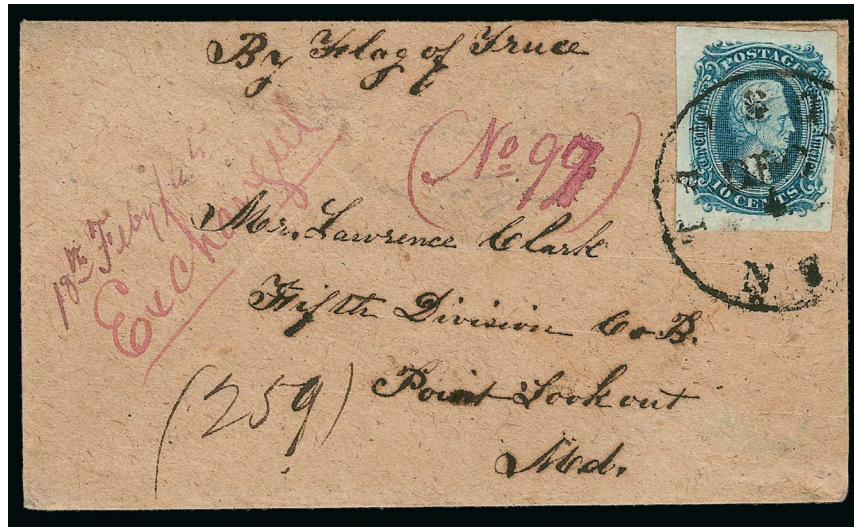 By Flag of Truce
POSTAGE
10 CENTS
DEC
N
(No 99)
18th Feby/65
Exchanged
Mr. Lawrence Clark
Fifth Division Co B.
Point Lookout
Md.
(259)